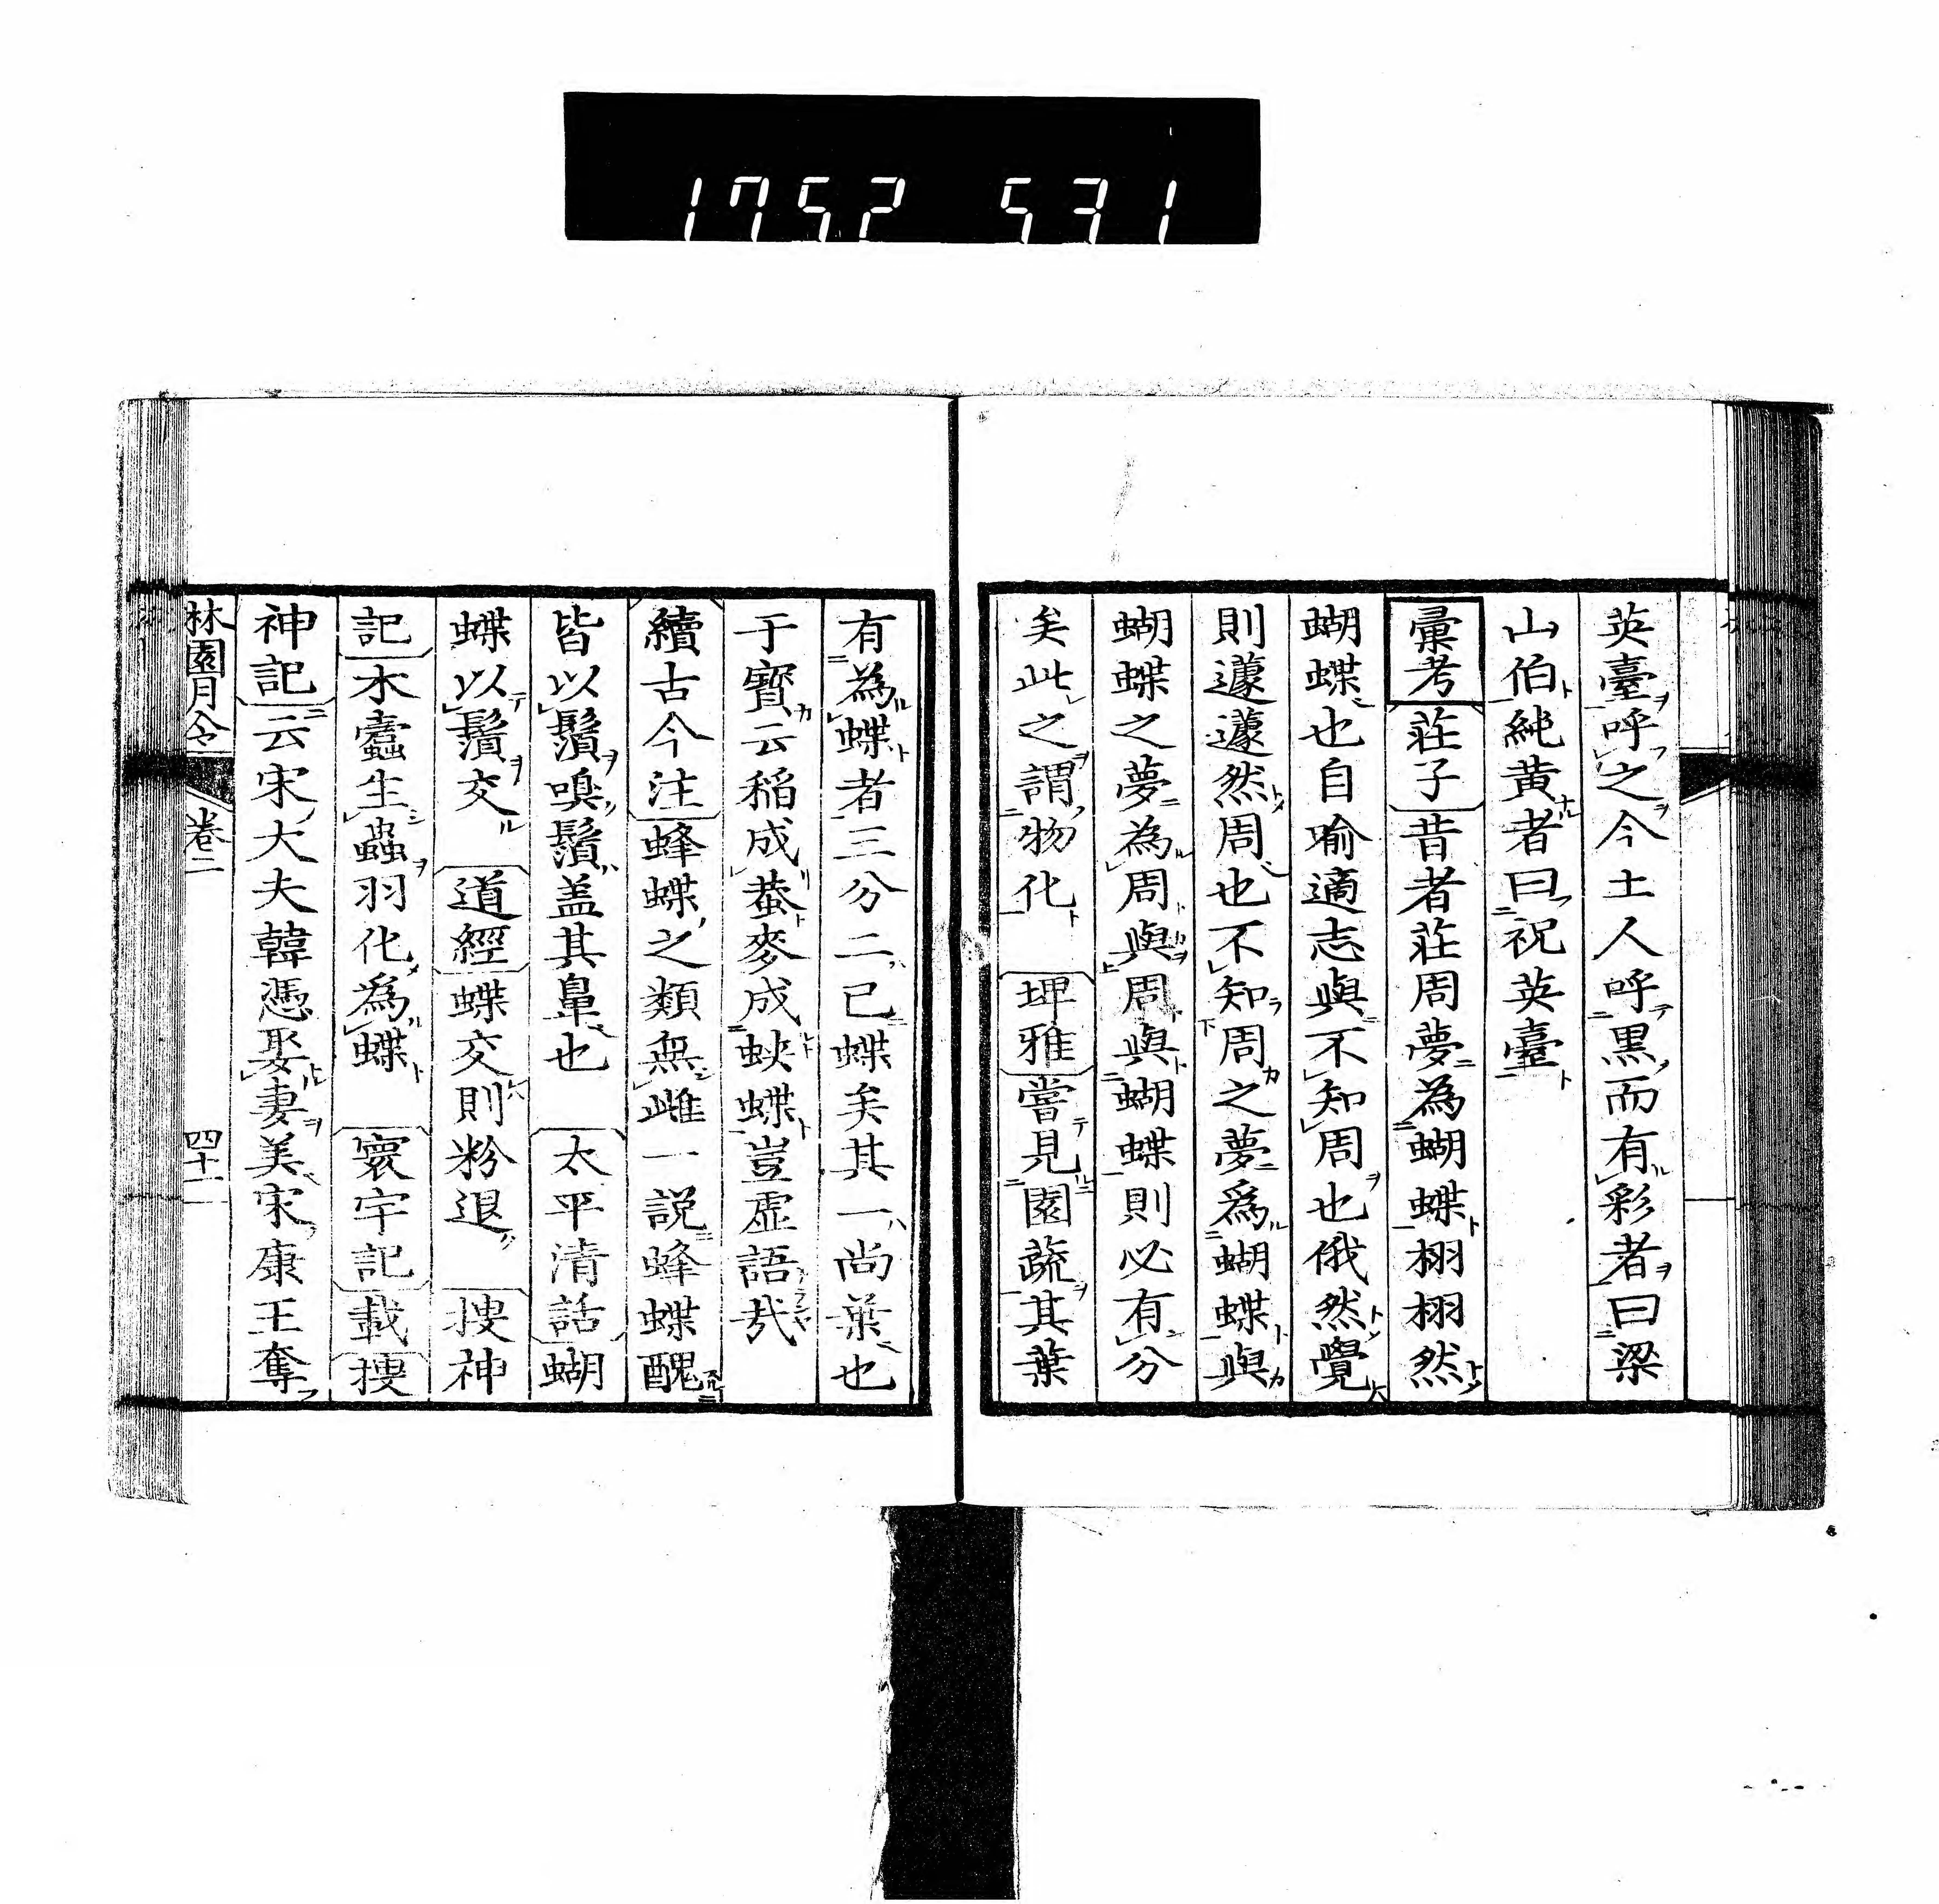 1752 531
英臺呼之今土人呼黒而有彩者曰梁
山伯純黄者曰祝英臺
彙考 莊子 昔者莊周夢為蝴蝶栩栩然
蝴蝶也自喻適志與不知周也俄然覺
則蘧蘧然周也不知周之夢爲蝴蝶與
蝴蝶之夢為周與周與蝴蝶則必有分
矣此之謂物化 埤雅 嘗見園蔬其葉
有為蝶者三分二已蝶矣其一尚葉也
于寶云稲成蛬麥成蛺蝶豈虛語哉
續古今注 蜂蝶之類無雌一說蜂蝶醜
皆以鬚嗅鬚盖其鼻也 太平清話 蝴
蝶以鬚交 道經 蝶交則粉退 搜神
記 木蠹生蟲羽化為蝶 寰宇記 載 搜
神記 云宋大夫韓憑娶妻美宋康王奪
林園月令 卷二 四十一